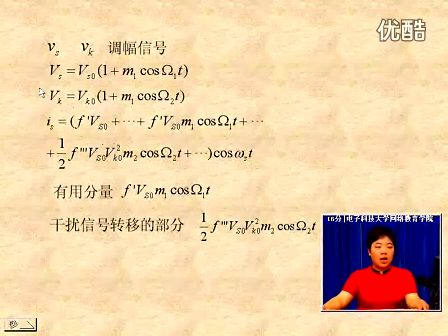 优酷
v_s v_k 调幅信号
V_s = V_{s0}(1 + m_1 cosΩ_1 t)
V_k = V_{k0}(1 + m_1 cosΩ_2 t)
i_s = (f'V_{S0} + ⋯ + f'V_{S0} m_1 cosΩ_1 t + ⋯
+ 1/2 f'''V_{S0}V_{k0}^2 m_2 cosΩ_2 t + ⋯) cosω_s t
有用分量 f'V_{S0} m_1 cosΩ_1 t
干扰信号转移的部分 1/2 f'''V_{S0}V_{k0}^2 m_2 cosΩ_2 t
电子科技大学网络教育学院